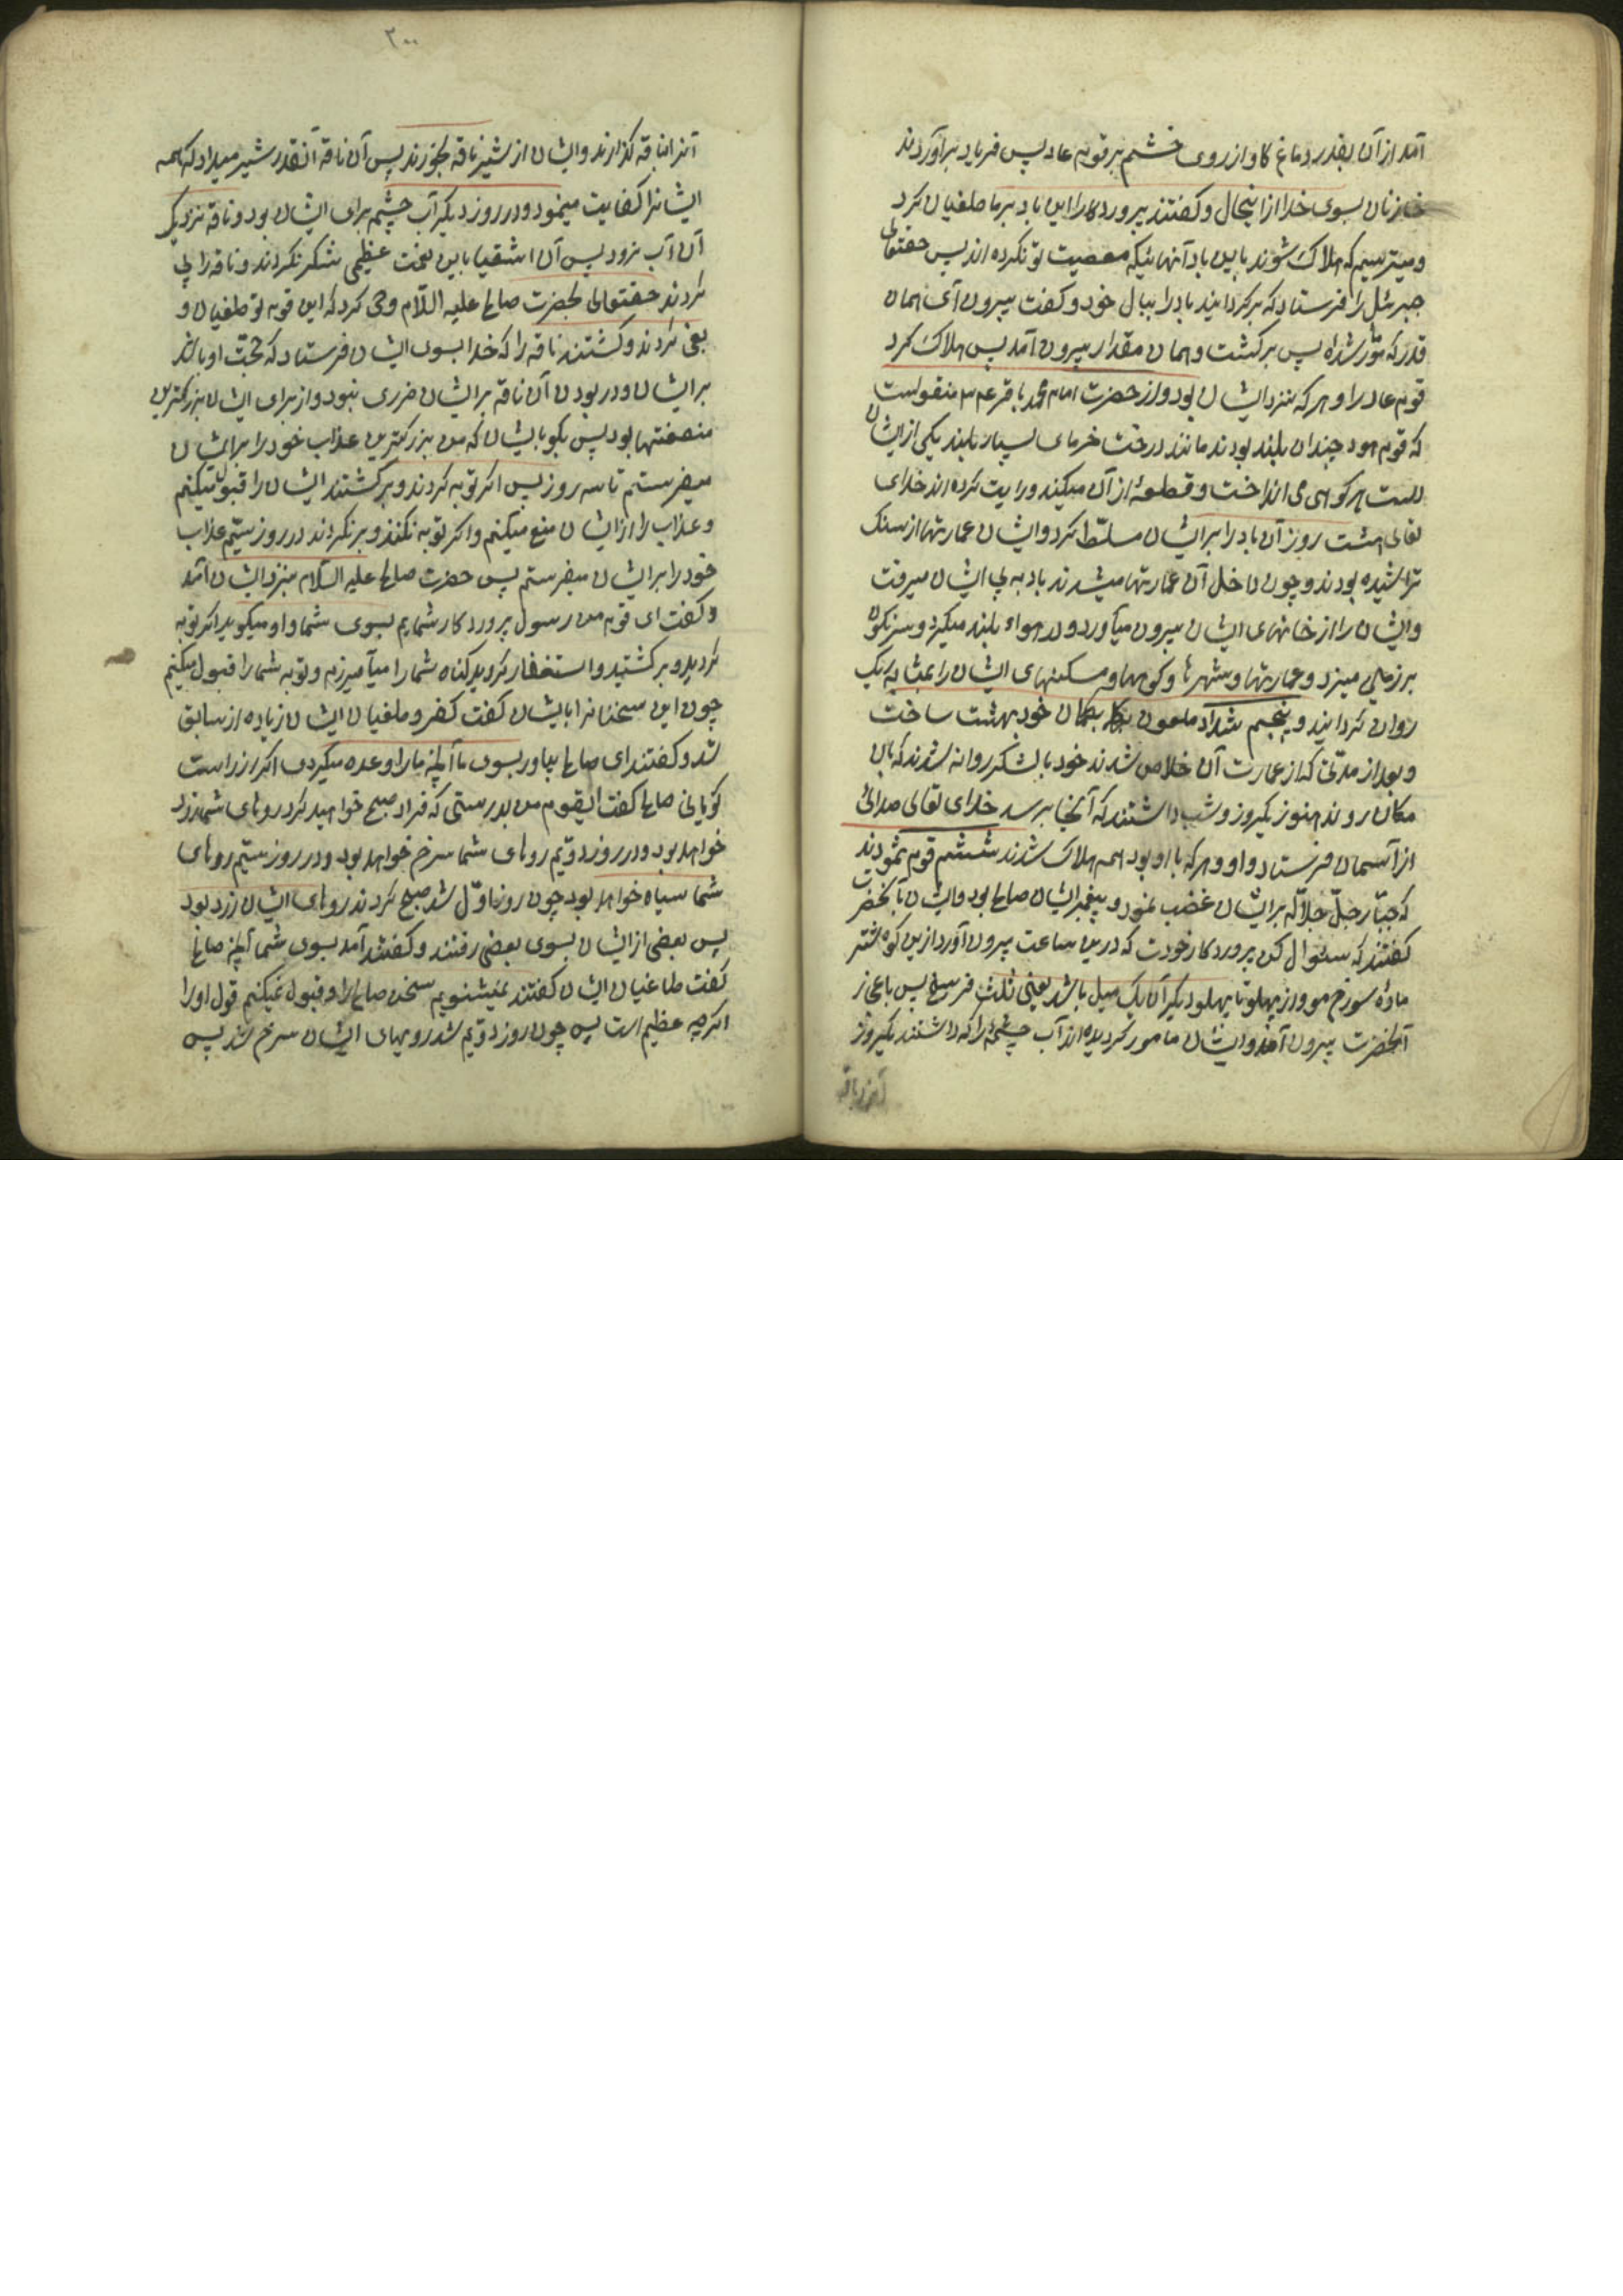 آمد از آن بقدر دماغ کاو از روی خشم بر قوم عاد پس فریاد برآوردند
خازنان بسوی خدا از اینحال و کفتند پروردکارا این باد بر ما طغیان کرد
و میترسیم که هلاک شوند باین باد آنهائیکه معصیت تو نکرده اند پس حقتعالی
جبرئل را فرستاد که برکردانید باد را ببال خود و کفت بیرون آی همان
قدر که مقرر شده پس برکشت و همان مقدار بیرون آمد پس هلاک کرد
قوم عاد را و هر که نزد ایشان بود و از حضرت امام محمد باقر ع م منقولست
که قوم هود چندان بلند بودند مانند درخت خرمای بسیار بلند یکی از ایشان
دست بر کوهی می انداخت و قطعهٔ از آن میکند و رایت کرده اند خدای
تعالی هشت روز آن باد را بر ایشان مسلّط کرد و ایشان عمارتها از سنک
تراشیده بودند و چون داخل آن عمارتها میشدند باد به پی ایشان میرفت
و ایشان را از خانهای ایشان بیرون میآورد و در هواء بلند میکرد و سرنکون
بر زمین میزد و عمارتها و شهرها و کوهها و مسکنهای ایشان را بمثابه ریک
روان کردانید و پنجم شداد ملعون بکمان خود بهشت ساخت
و بعد از مدتی که از عمارت آن خلاص شدند خود با لشکر روانه شدند که بآن
مکان روند هنوز یکروز و شب داشتند که آنجا برسد خدای تعالی صدائی
از آسمان فرستاد و او و هر که با او بود همه هلاک شدند ششم قوم ثمودند
که جبّار جلّ جلاله بر ایشان غضب نمود و پیغمبر ایشان صالح بود و ایشان بآنحضرت
کفتند که سئوال کن پروردکار خودت که درین ساعت بیرون آورد ازین کوه شتر
مادهٔ سورخ مو و از پهلو تا پهلو دیکر آن یک میل باشد یعنی ثلث فرسخ پس باعجاز
آنحضرت بیرون آمد و ایشان مامور کردیدهاند آب چشمهٔ را که داشتند یکروز
آنرا بناقه
۳۰۰
آنرا بناقه کذارند و ایشان از شیر ناقه بخورند پس آن ناقه آنقدر شیر میداد که همه
ایشانرا کفایت مینمود و در روز دیکر آب چشم برای ایشان بود و ناقه نزدیک
آن آب نرود پس آن اشقیا باین نعمت عظیمی شکر نکردند و ناقه را پی
کردند حقتعالی بحضرت صالح علیه السّلام وحی کرد که این قوم تو طغیان و
بغی کردند و کشتند ناقه را که خدا بسوی ایشان فرستاد که حجّت او باشد
بر ایشان و در بودن آن ناقه بر ایشان ضرری نبود و از برای ایشان بزرکترین
منفعتها بود پس بکو بایشان که من بزرکترین عذاب خود را بر ایشان
میفرستم تا سه روز پس اکر توبه کردند و برکشتند ایشان را قبول میکنم
و عذاب را از ایشان منع میکنم و اکر توبه نکنند و برنکردند در روز سیّم عذاب
خود را بر ایشان میفرستم پس حضرت صالح علیه السّلام بنزد ایشان آمد
و کفت ای قوم من رسول پروردکار شمایم بسوی شما و او میکوید اکر توبه
کردید و برکشتید و استغفار کردید کناه شما را میآمرزم و توبه شما را قبول میکنم
چون این سخنانرا بایشان کفت کفر و طغیان ایشان زیاده از سابق
شد و کفتند ای صالح بیاور بسوی ما آنچه ما را وعده میکردی اکر از راست
کویانی صالح کفت ایقوم من بدرستی که فردا صبح خواهید کرد روهای شما زرد
خواهد بود و در روز دوّیم روهای شما سرخ خواهد بود و در روز سیّم روهای
شما سیاه خواهد بود چون روز اوّل شد صبح کردند روهای ایشان زرد بود
پس بعضی از ایشان بسوی بعضی رفتند و کفتند آمد بسوی شما آنچه صالح
کفت طاغیان ایشان کفتند نمیشنویم سخن صالح را و قبول نمیکنم قول او را
اکرچه عظیم است پس چون روز دوّیم شد رویهای ایشان سرخ شد پس